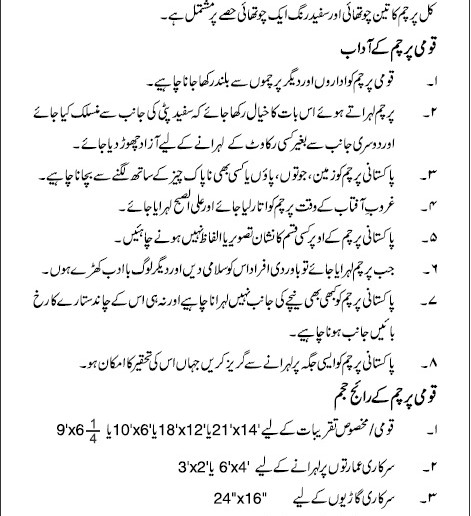 کل پرچم کا تین چوتھائی اور سفید رنگ ایک چوتھائی حصے پر مشتمل ہے۔
قومی پرچم کے آداب
۱۔ قومی پرچم کو اداروں اور دیگر پرچموں سے بلند رکھا جانا چاہیے۔
۲۔ پرچم لہراتے ہوئے اس بات کا خیال رکھا جائے کہ سفید پٹی کی جانب سے منسلک کیا جائے
اور دوسری جانب سے بغیر کسی رکاوٹ کے لہرانے کے لیے آزاد چھوڑ دیا جائے۔
۳۔ پاکستانی پرچم کو زمین، جوتوں، پاؤں یا کسی بھی ناپاک چیز کے ساتھ لگنے سے بچانا چاہیے۔
۴۔ غروب آفتاب کے وقت پرچم کو اتار لیا جائے اور علی الصبح لہرایا جائے۔
۵۔ پاکستانی پرچم کے اوپر کسی قسم کا نشان تصویر یا الفاظ نہیں ہونے چاہئیں۔
۶۔ جب پرچم لہرایا جائے تو باوردی افراد اس کو سلامی دیں اور دیگر لوگ با ادب کھڑے ہوں۔
۷۔ پاکستانی پرچم کو کبھی بھی نیچے کی جانب نہیں لہرانا چاہیے اور نہ ہی اس کے چاند ستارے کا رخ
بائیں جانب ہونا چاہیے۔
۸۔ پاکستانی پرچم کو ایسی جگہ پر لہرانے سے گریز کریں جہاں اس کی تحقیر کا امکان ہو۔
قومی پرچم کے رائج حجم
۱۔ قومی/مخصوص تقریبات کے لیے 21'x14' یا 18'x12' یا 10'x6' یا 9'x6 1/4
۲۔ سرکاری عمارتوں پر لہرانے کے لیے 6'x4' یا 3'x2'
۳۔ سرکاری گاڑیوں کے لیے 24"x16"